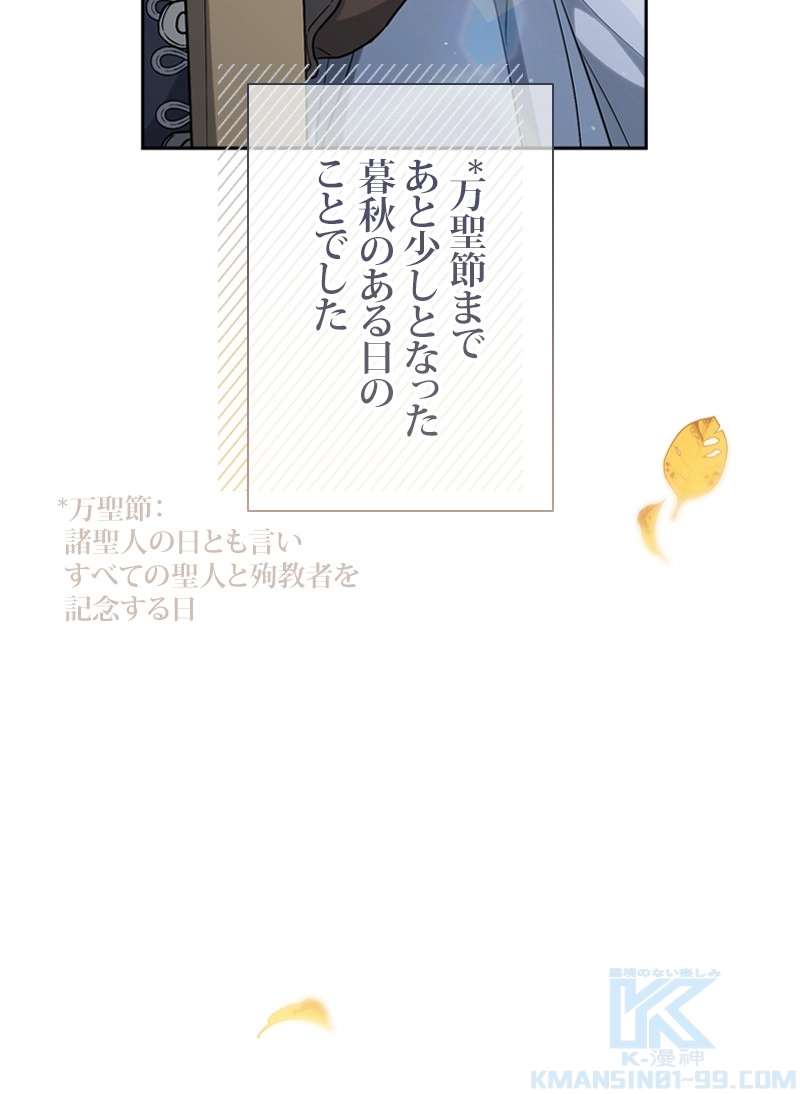 *万聖節まで
あと少しとなった
暮秋のある日の
ことでした
*万聖節:
諸聖人の日とも言い
すべての聖人と殉教者を
記念する日
最境のない楽しみ
K-漫神
KMANSIN01-99.COM